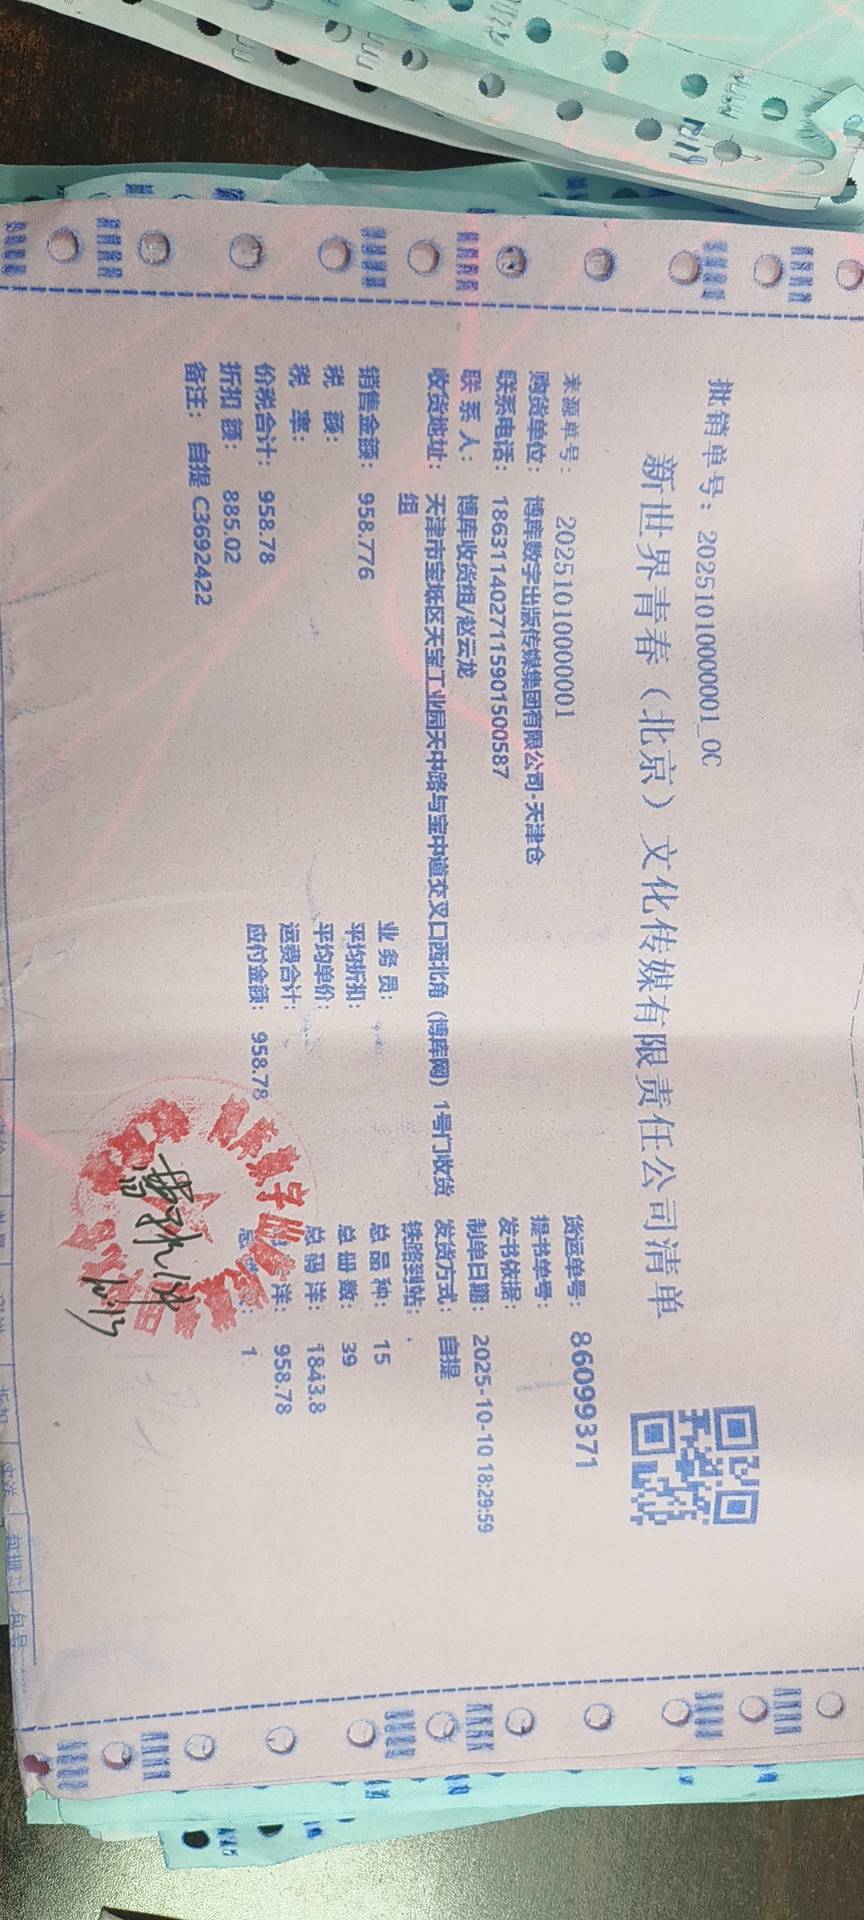 批销单号：20251010000001_0C
新世界青春（北京）文化传媒有限责任公司清单
来源单号：20251010000001
货运单号：86099371
购货单位：博库数字出版传媒集团有限公司-天津仓
提书单号：
联系电话：1863114027115901500587
发书依据：
联 系 人：博库收货组/赵云龙
制单日期：2025-10-10 18:29:59
收货地址：天津市宝坻区天宝工业园天中路与宝中道交叉口西北角（博库网）1号门收货
组
发货方式：自提
铁路到站：.
销售金额：958.776
业 务 员：
总 品 种：15
税 额：
平均折扣：
总 册 数：39
税 率：
平均单价：
总 码 洋：1843.8
价税合计：958.78
运费合计：
洋：958.78
折扣 额：885.02
应付金额：958.78
：1
备注：自提 C3692422